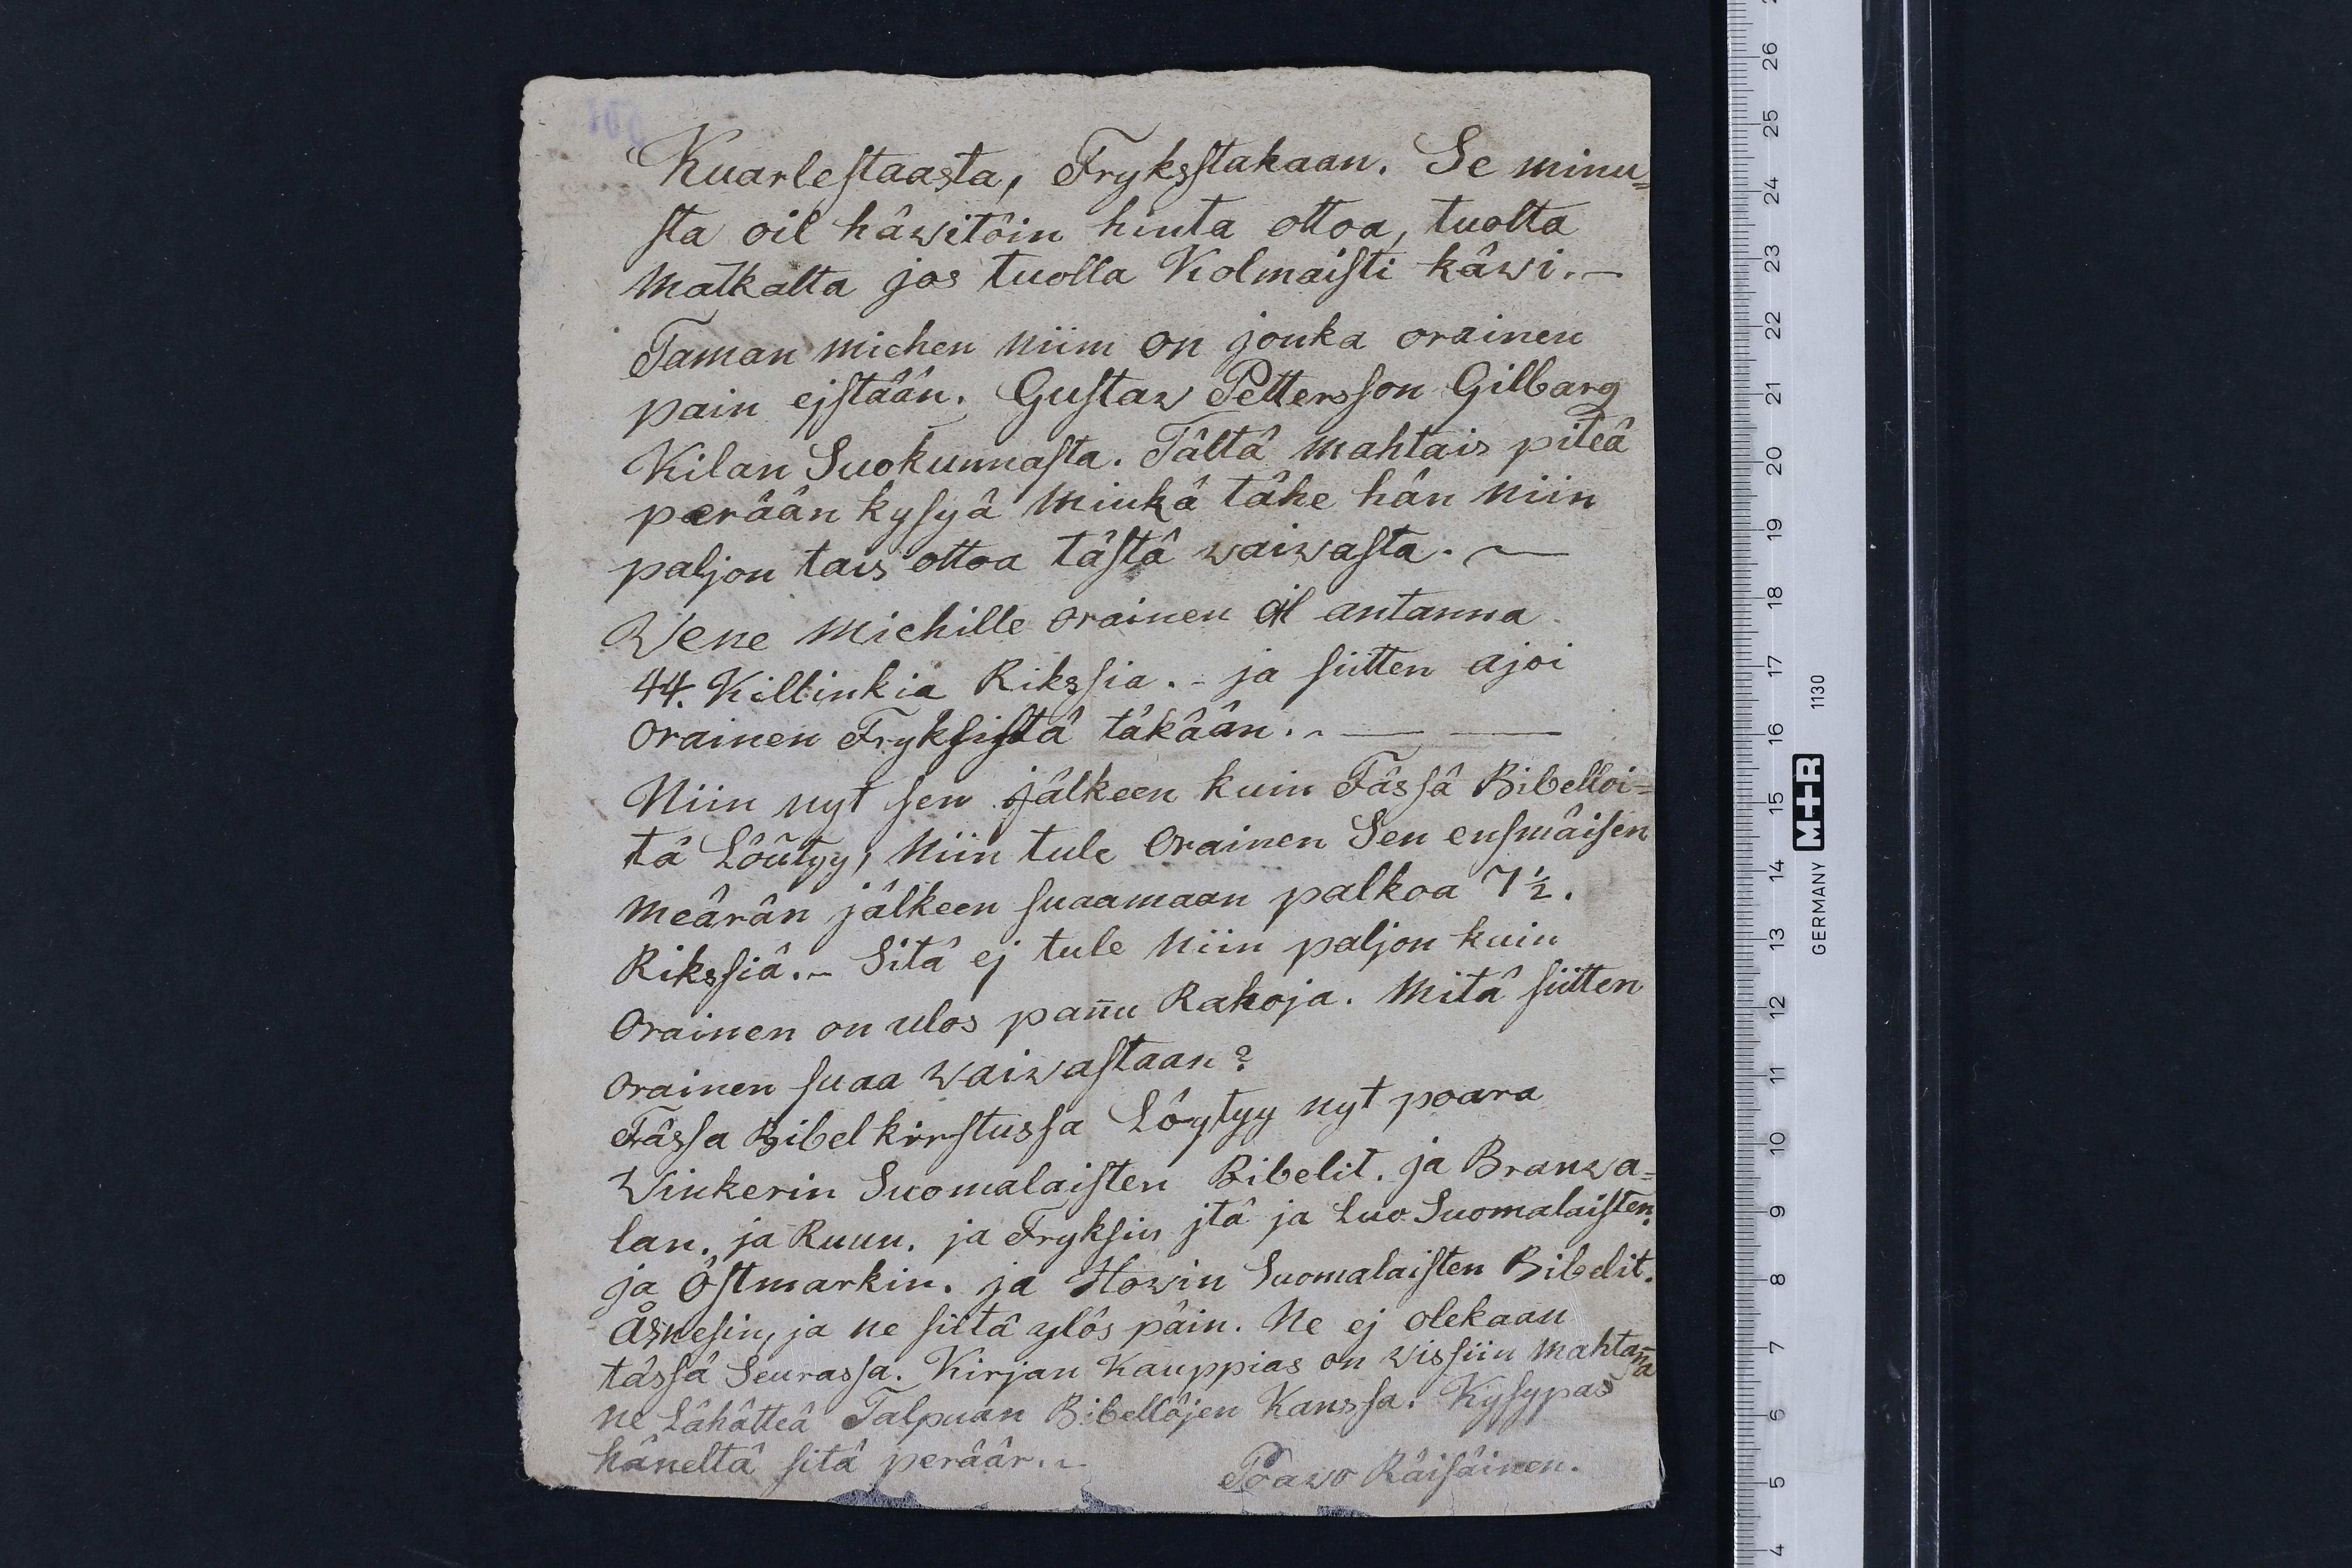 Kuarlestaasta, Fryksstakaan. Se minu=
sta oil häwitöin hinta ottoa, tuolta
Matkalta jos tuolla Kolmaisti käwi.—
Taman miehen niim on jonka orainen
pain ejstään. Gustaw Pettersson Gilbarg
Kilan Suokunnasta. Tältä mahtais piteä
perään kysyä minkä tähe hän niin
paljon tais ottoa tästä waiwasta. —
Wene miehille orainen oil antanna
44. Killinkia Rikssia. - ja siitten ajoi
orainen Fryksistä täkään. - — —
Niin nyt sen jälkeen kuin Tässä Bibelloi=
tä Löütyy, niin tule Orainen Sen ensmäisen
meärän jälkeen suaamaan palkoa 7½.
Rikssiä. - Sitä ej tule niin paljon kuin
Orainen on ulos pan̄u Rahoja. Mitä siitten
orainen suaa waiwastaan?
Tässa Bibel kirstussa Löytyy nyt poara
Winkerin Suomalaisten Bibelit. ja Branwa=
lan. ja Ruun. ja Fryksin jtä ja Luo Suomalaisten.
ja Östmarkin. ja Howin Suomalaisten Bibelit.
Åsnesin, ja ne siitä ylös päin. Ne ej olekaan
tässä Seurassa. Kirjan Kauppias on wissiin mahtan̄a
ne Lähätteä Talpuan Bibellöjen Kanssa. Kysypas
häneltä sitä peräär. -
Poawo Räisäinen.
1130
GERMANY M+R
4
5
6
7
8
9
10
11
12
13
14
15
16
17
18
19
20
21
22
23
24
25
26